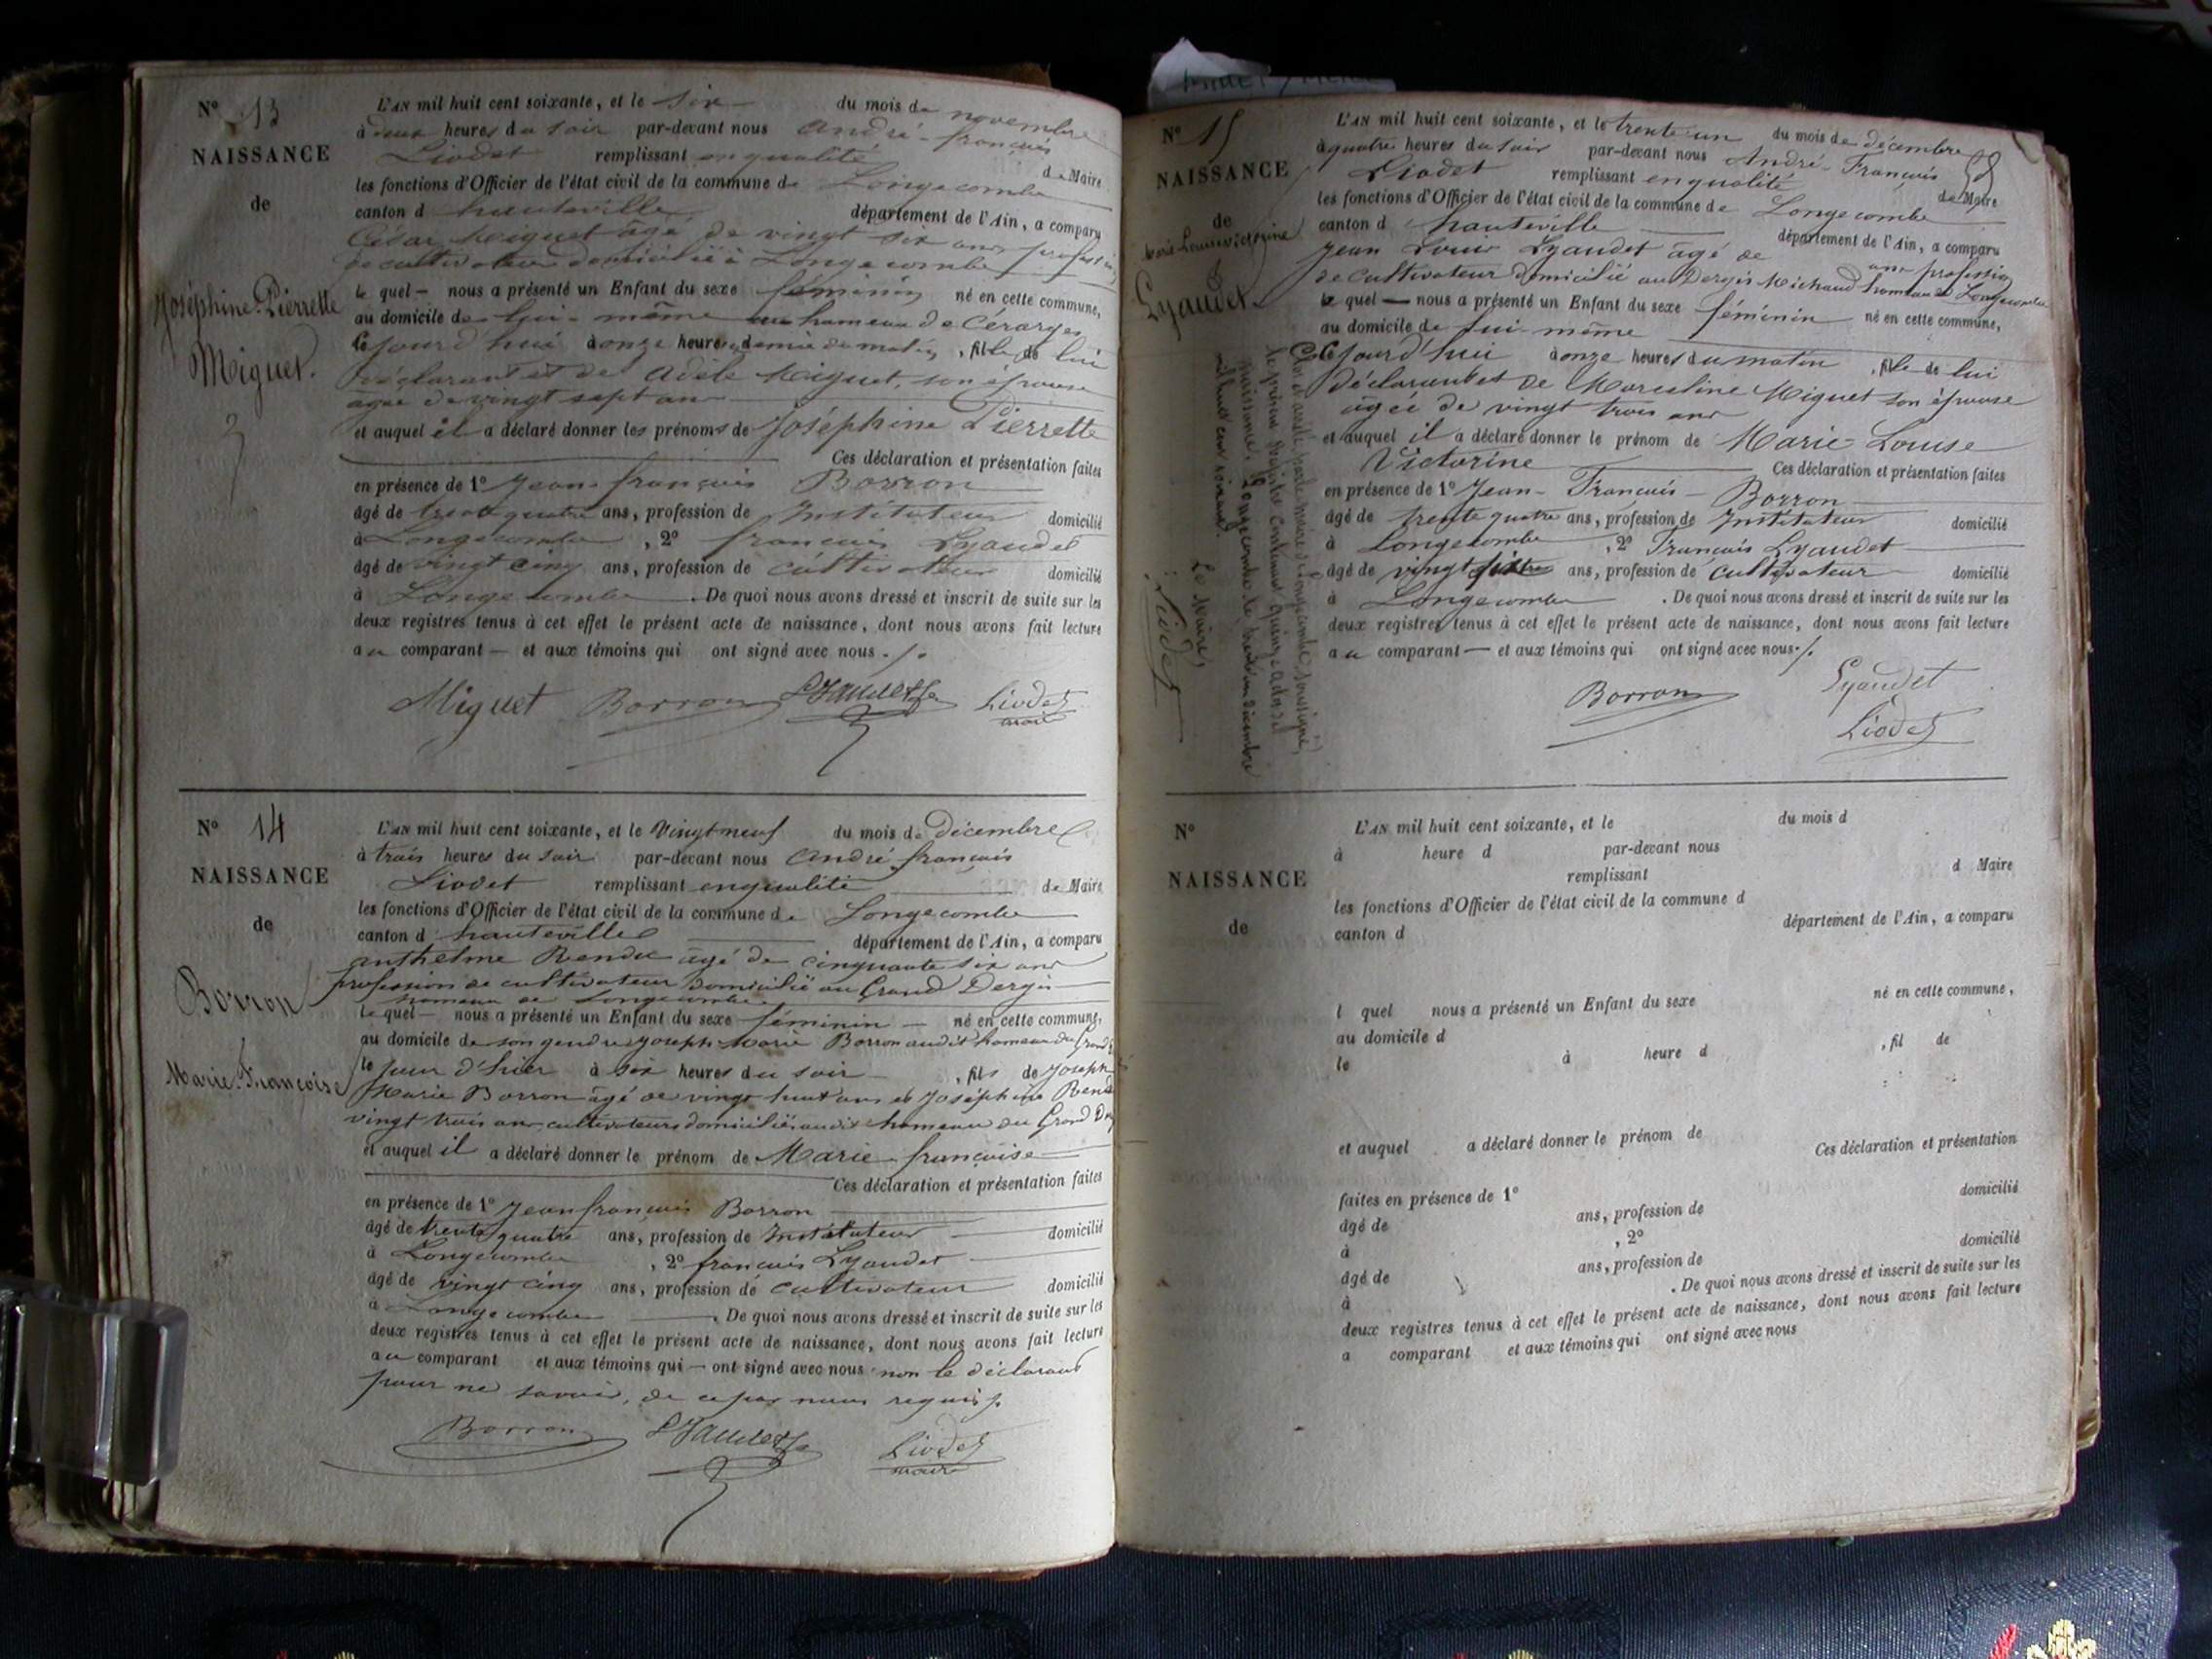 N° 13
NAISSANCE
de
Joséphine Pierrette
Miguet.
L'AN mil huit cent soixante, et le six du mois de novembre
à deux heures du soir par-devant nous André-françois
Liodet remplissant en qualité de Maire
les fonctions d'Officier de l'état civil de la commune de Longecombe
canton d hauteville département de l'Ain, a comparu
César Miguet âgé de vingt six ans profession
de cultivateur domicilié à Longecombe
le quel — nous a présenté un Enfant du sexe féminin né en cette commune,
au domicile de lui-même au hameau de Cérarges
Cejourd'hui à onze heures demie du matin, fille de lui
déclarant et de Adèle Miguet, son épouse
agée de vingt sept ans
et auquel il a déclaré donner les prénoms de Joséphine Pierrette
Ces déclaration et présentation faites
en présence de 1° Jean-françois Borron
âgé de trente quatre ans, profession de Instituteur domicilié
à Longecombe, 2° françois Lyaudet
âgé de vingt cinq ans, profession de cultivateur domicilié
à Longecombe. De quoi nous avons dressé et inscrit de suite sur les
deux registres tenus à cet effet le présent acte de naissance, dont nous avons fait lecture
au comparant — et aux témoins qui ont signé avec nous ./.
Miguet Borron Lyaudet Liodet
maire
N° 14
NAISSANCE
de
Borron
Marie Françoise
L'AN mil huit cent soixante, et le Vingt neuf du mois de Décembre
à trois heures du soir par-devant nous André françois
Liodet remplissant en qualité de Maire
les fonctions d'Officier de l'état civil de la commune de Longecombe
canton d hauteville département de l'Ain, a comparu
anthelme Rendu âgé de cinquante six ans
profession de cultivateur domicilié au Grand Dergis
hameau de Longecombe
le quel — nous a présenté un Enfant du sexe féminin — né en cette commune,
au domicile de son gendre Joseph Marie Borron audit hameau du Grand
le jour d'hier à six heures du soir, fils de Joseph
Marie Borron âgé de vingt huit ans et Joséphine Rendu
vingt trois ans cultivateurs domiciliés audit hameau du Grand
et auquel il a déclaré donner le prénom de Marie-françoise
Ces déclaration et présentation faites
en présence de 1° Jean françois Borron
âgé de trente quatre ans, profession de Instituteur domicilié
à Longecombe, 2° françois Lyaudet
âgé de vingt cinq ans, profession de cultivateur domicilié
à Longecombe. De quoi nous avons dressé et inscrit de suite sur les
deux registres tenus à cet effet le présent acte de naissance, dont nous avons fait lecture
au comparant et aux témoins qui — ont signé avec nous non le déclarant
pour ne savoir, de ce par nous requis ./.
Borron Lyaudet Liodet
maire
N° 15
NAISSANCE
de
Marie Louise Victorine
Lyaudet
L'AN mil huit cent soixante, et le trente-un du mois de décembre
à quatre heures du soir par-devant nous André-François
Liodet remplissant en qualité de Maire
les fonctions d'Officier de l'état civil de la commune de Longecombe
canton d hauteville département de l'Ain, a comparu
Jean Louis Lyaudet âgé de ans profession
de cultivateur domicilié au Dergis Michaud hameau de Longecombe
le quel — nous a présenté un Enfant du sexe féminin né en cette commune,
au domicile de lui-même
Cejourd'hui à onze heures du matin, fille de lui
déclarant et de Marceline Miguet son épouse
agée de vingt trois ans
et auquel il a déclaré donner le prénom de Marie-Louise
Victorine Ces déclaration et présentation faites
en présence de 1° Jean-François-Borron
âgé de trente quatre ans, profession de Instituteur domicilié
à Longecombe, 2° François Lyaudet
âgé de vingt ans, profession de cultivateur domicilié
à Longecombe. De quoi nous avons dressé et inscrit de suite sur les
deux registres tenus à cet effet le présent acte de naissance, dont nous avons fait lecture
au comparant — et aux témoins qui ont signé avec nous ./.
Borron Lyaudet
Liodet
Clos et arrêté par le maire de Longecombe, soussigné,
le présent registre contenant quinze actes de
naissance. Longecombe le trente un décembre
mil huit cent soixante.
Le Maire,
Liodet
N°
NAISSANCE
de
L'AN mil huit cent soixante, et le du mois d
à heure d par-devant nous
remplissant d Maire
les fonctions d'Officier de l'état civil de la commune d
canton d département de l'Ain, a comparu
l quel nous a présenté un Enfant du sexe né en cette commune,
au domicile d
le à heure d , fil de
et auquel a déclaré donner le prénom de
Ces déclaration et présentation
faites en présence de 1° domicilié
âgé de ans, profession de
à , 2° domicilié
âgé de ans, profession de
à . De quoi nous avons dressé et inscrit de suite sur les
deux registres tenus à cet effet le présent acte de naissance, dont nous avons fait lecture
a comparant et aux témoins qui ont signé avec nous